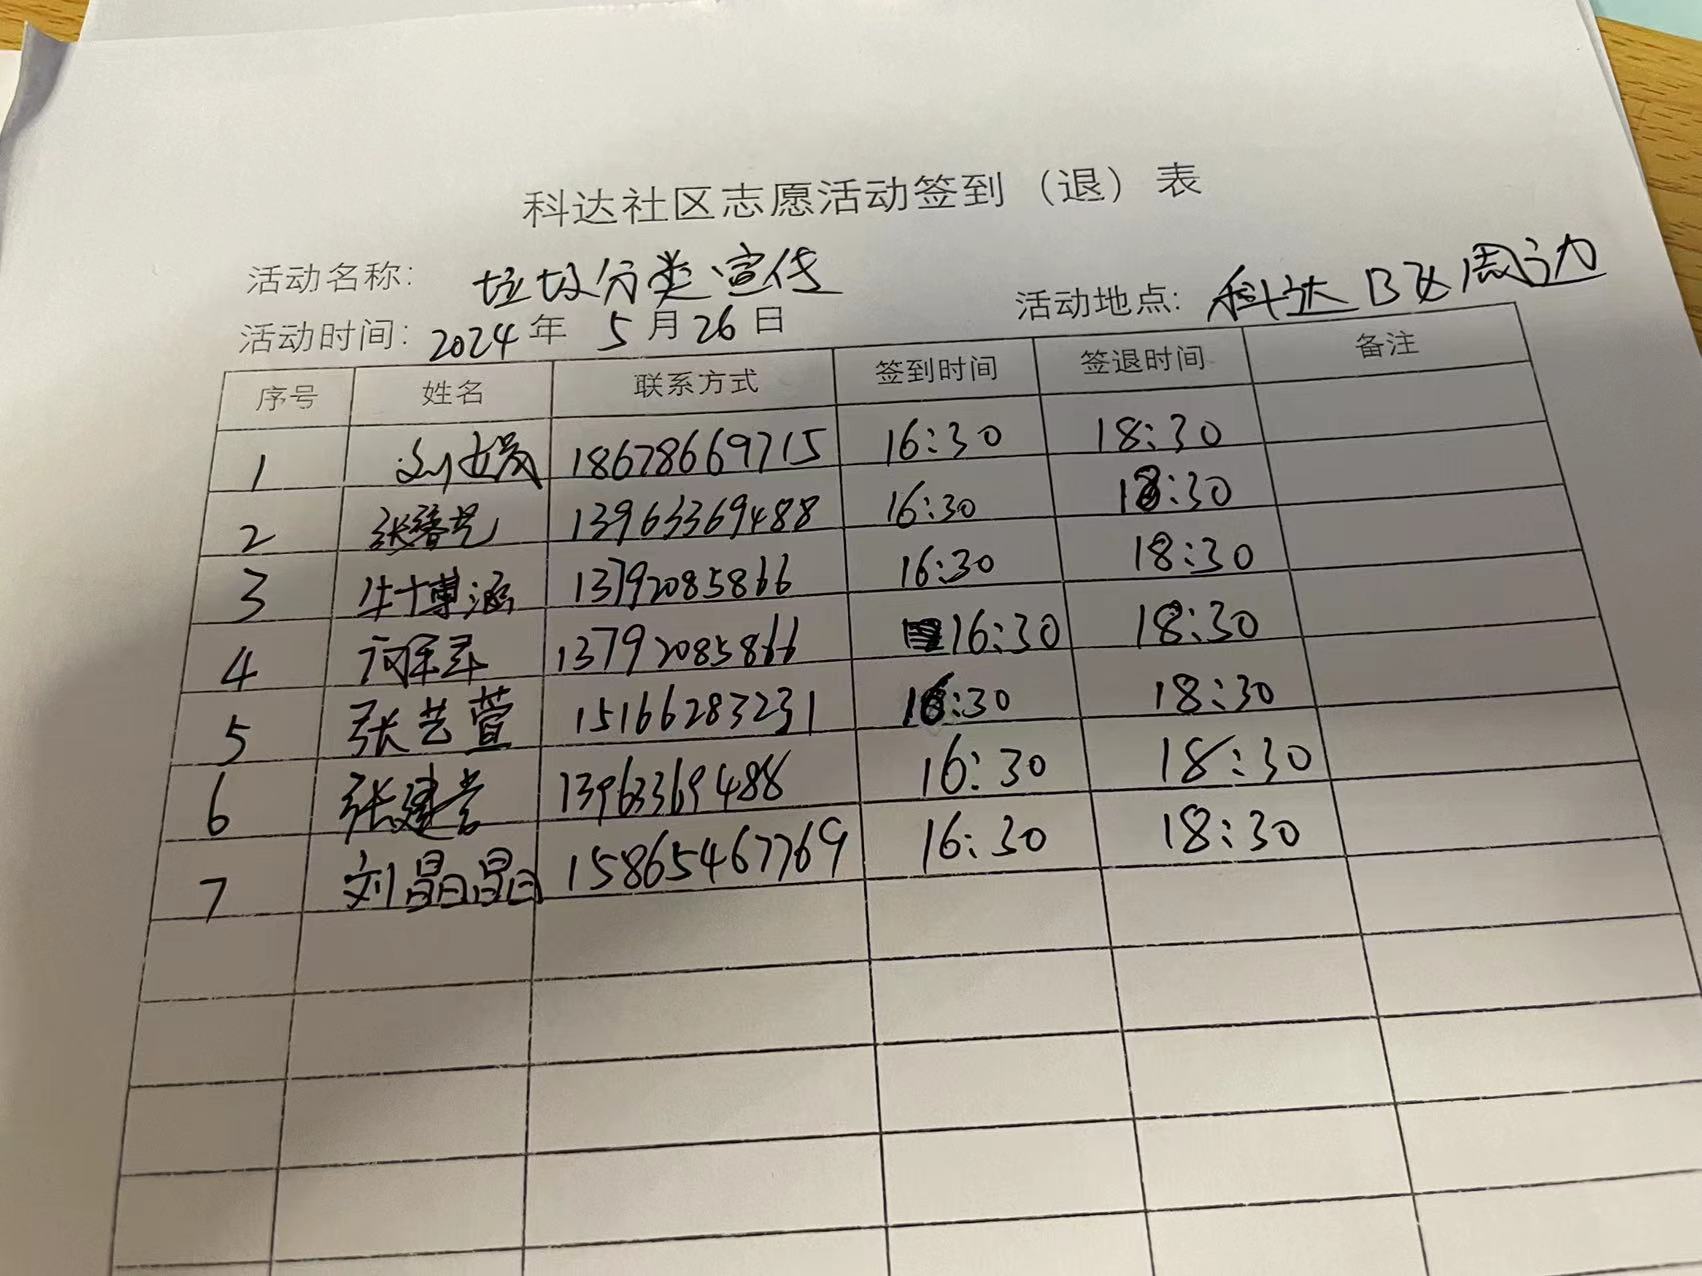 科达社区志愿活动签到（退）表
活动名称： 垃圾分类宣传
活动时间：2024年 5月26日 活动地点：科达B区周边
序号 姓名 联系方式 签到时间 签退时间 备注
1 刘 18678669715 16:30 18:30
2 张 13963369488 16:30 18:30
3 牛博涵 13792085866 16:30 18:30
4 13792085866 16:30 18:30
5 张艺萱 15166283231 16:30 18:30
6 张建营 13963369488 16:30 18:30
7 刘晶晶 15865467769 16:30 18:30